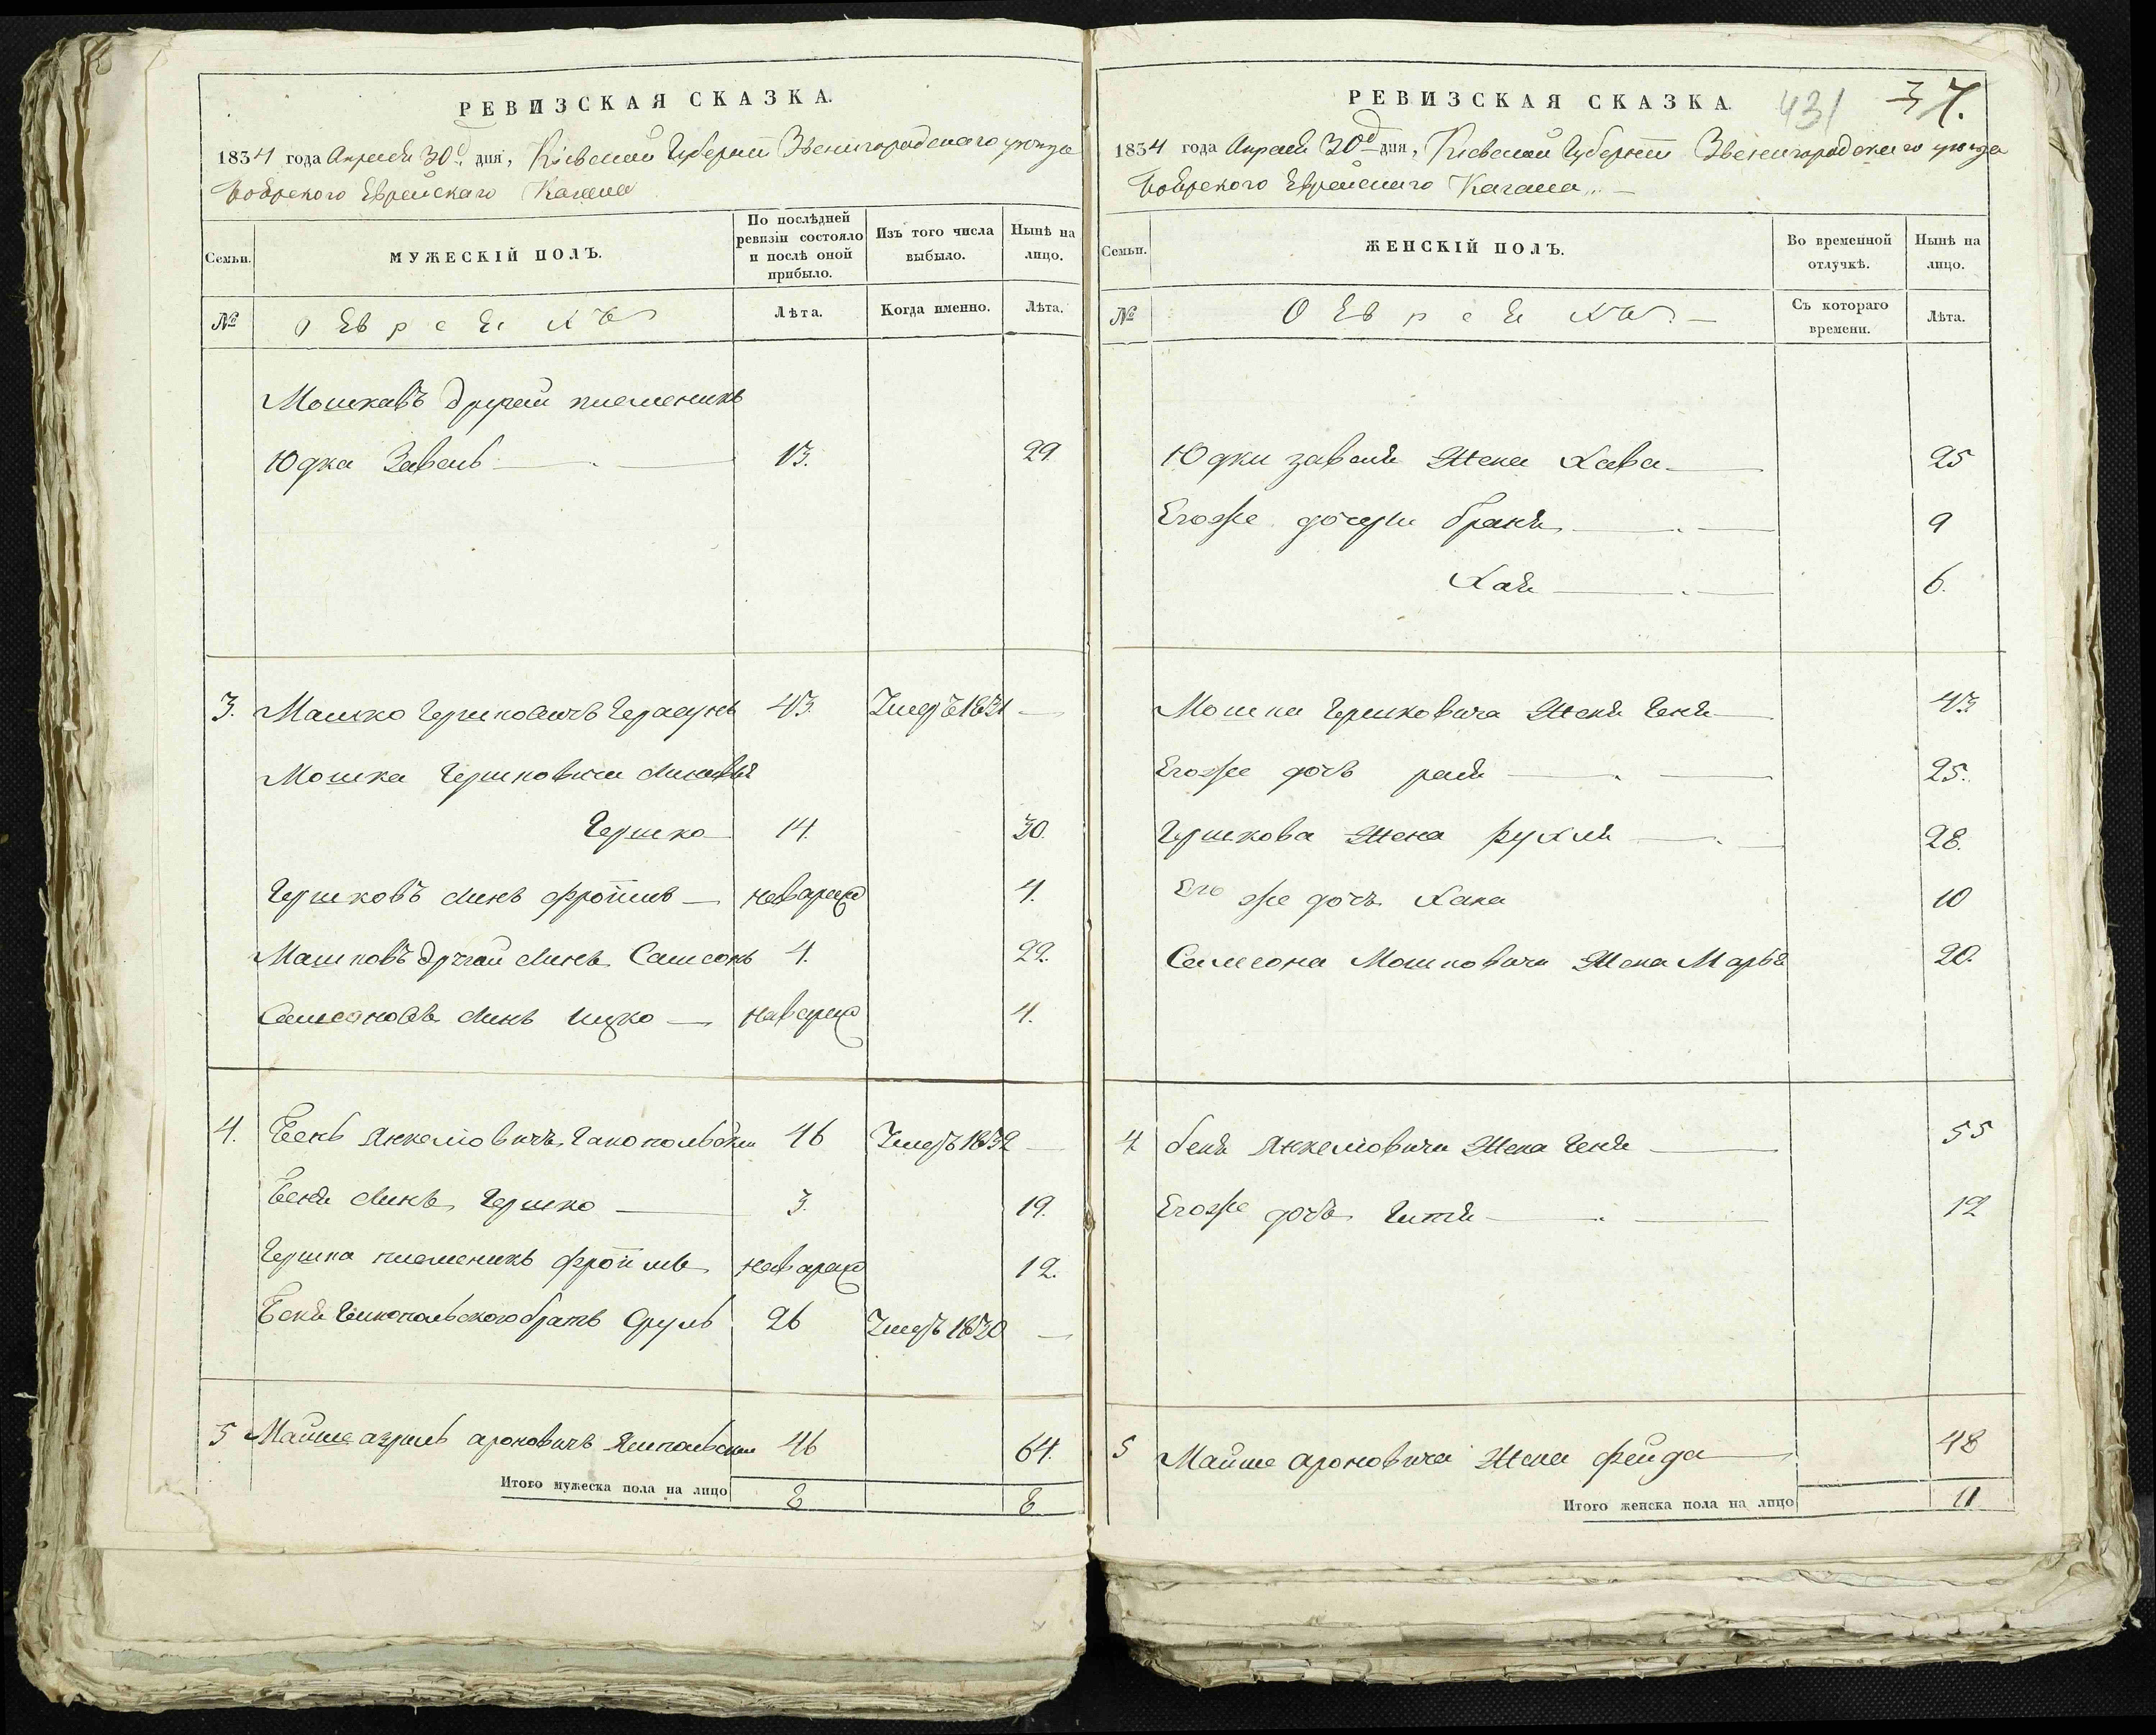 РЕВИЗСКАЯ СКАЗКА.
1834 года Апреля 30д. дня, Кіевской Губерніи Звенигородскаго уезда
Боярского Еврейскаго Кагала
Семьи.
МУЖЕСКІЙ ПОЛЪ.
По послѣдней ревизіи состояло и послѣ оной прибыло.
Изъ того числа выбыло.
Нынѣ на лицо.
№
О Евреяхъ
Лѣта.
Когда именно.
Лѣта.
Мошковъ другой племеникъ
Юдка Завель 13. 29.
3. Мошко Гершковичъ 43. Умеръ 1831 —
Мошка Гершковича
Гершко 14. 30.
Гершковъ сынъ Фроимъ — 4.
Мошковъ другой сынъ Самсонъ 4. 22.
Самсоновъ сынъ Ицко — 4.
4. Бень Янкелiовичъ 46 Умеръ 1832 —
Беня сынъ Гершко 3. 19.
Гершка племеникъ Фроимъ 12.
Беня братъ Сруль 26 Умеръ 1830 —
5 Мойше азриль ароновичъ 46 64.
Итого мужеска пола на лицо 8 8
РЕВИЗСКАЯ СКАЗКА. 431 37.
1834 года Апреля 30д дня, Кіевской Губерніи Звенигородскаго уезда
Боярского Еврейскаго Кагала
Семьи.
ЖЕНСКІЙ ПОЛЪ.
Во временной отлучкѣ.
Нынѣ на лицо.
№
О Евреяхъ.
Съ котораго времени.
Лѣта.
Юдки завеля Жена Хава 25
Егоже дочери браня 9
Хая 6.
Мошка Гершковича Жена Геня 43
Егоже дочь рая 25.
Гершкова Жена рухля 28.
Его же дочь Хана 10
Самсона Мошковича Жена Марья 20.
4 беня Янкелiовича Жена Геня 55
Егоже дочь Гитя 12
5 Мойше ароновича Жена фейда 48
Итого женска пола на лицо 11